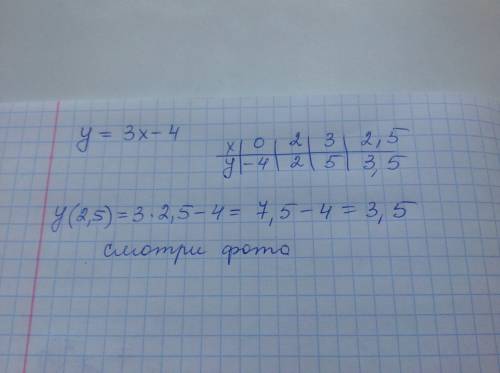 y = 3x - 4
x | 0 | 2 | 3 | 2,5
y | -4 | 2 | 5 | 3,5
y(2,5) = 3 · 2,5 - 4 = 7,5 - 4 = 3,5
смотри фото